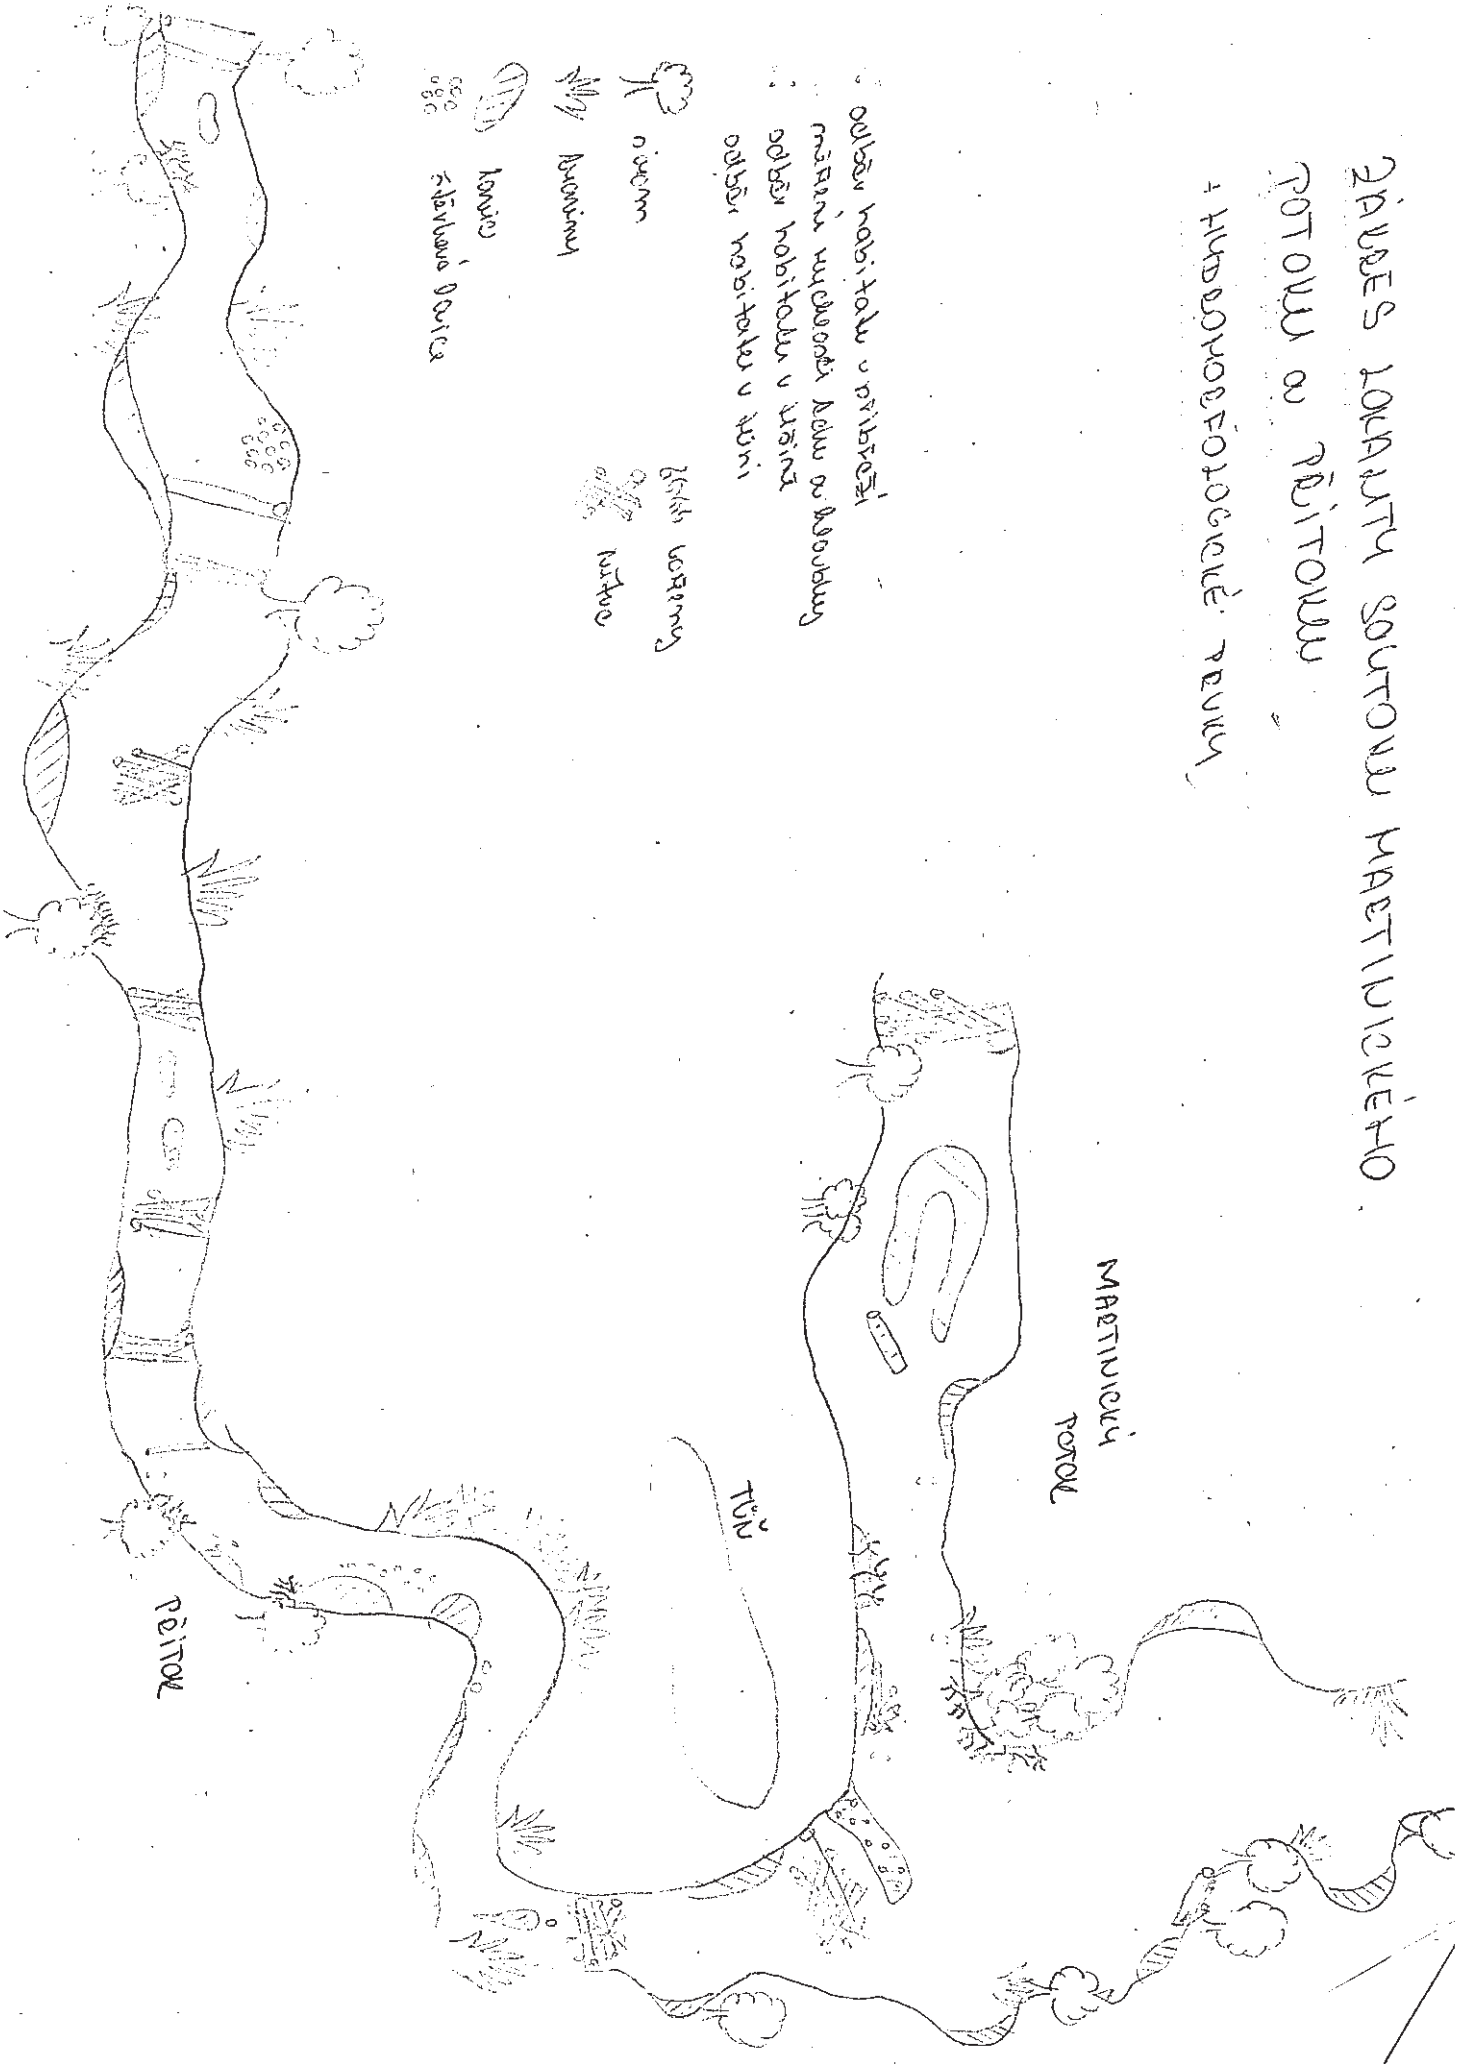 ZÁKRES LOKALITY SOUTOKU MARTINICKÉHO
POTOKU a PŘÍTOKU
+ HYDROMORFOLOGICKÉ PRVKY
odběr habitatu v příbřeží
měření rychlosti toku a hloubky
odběr habitatu v tišině
odběr habitatu v tůni
strom
traviny
lavice
štěrková lavice
kořeny
mrtvé
MARTINICKÝ
POTOK
TŮŇ
PŘÍTOK